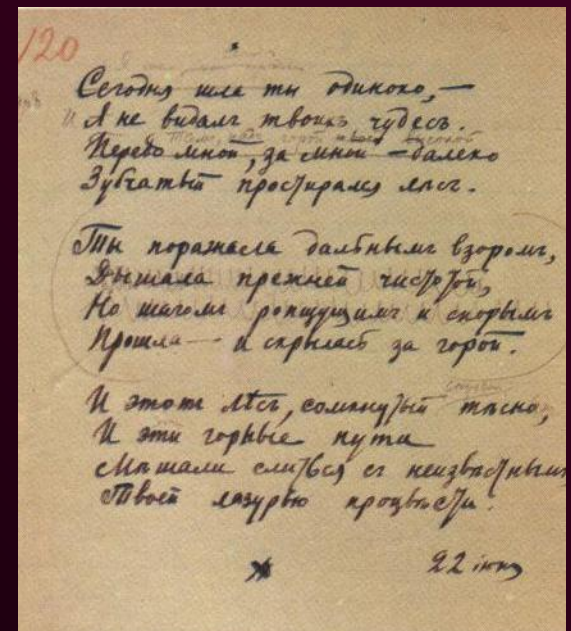 120
Сегодня шла ты одиноко,—
Я не видалъ твоихъ чудесъ.
Тамъ, надъ горой твоей высокой
Передо мной, за мной — далеко
Зубчатый простирался лѣсъ.
Ты поражала дальнымъ взоромъ,
Дышала прежней чистотой,
Но шагомъ ропщущимъ и скорымъ
Прошла — и скрылась за горой.
И этотъ лѣсъ, сомкнутый тѣсно,
И эти горные пути
Мѣшали слиться съ неизвѣстнымъ
Твоей лазурью процвѣсти.
22 іюня